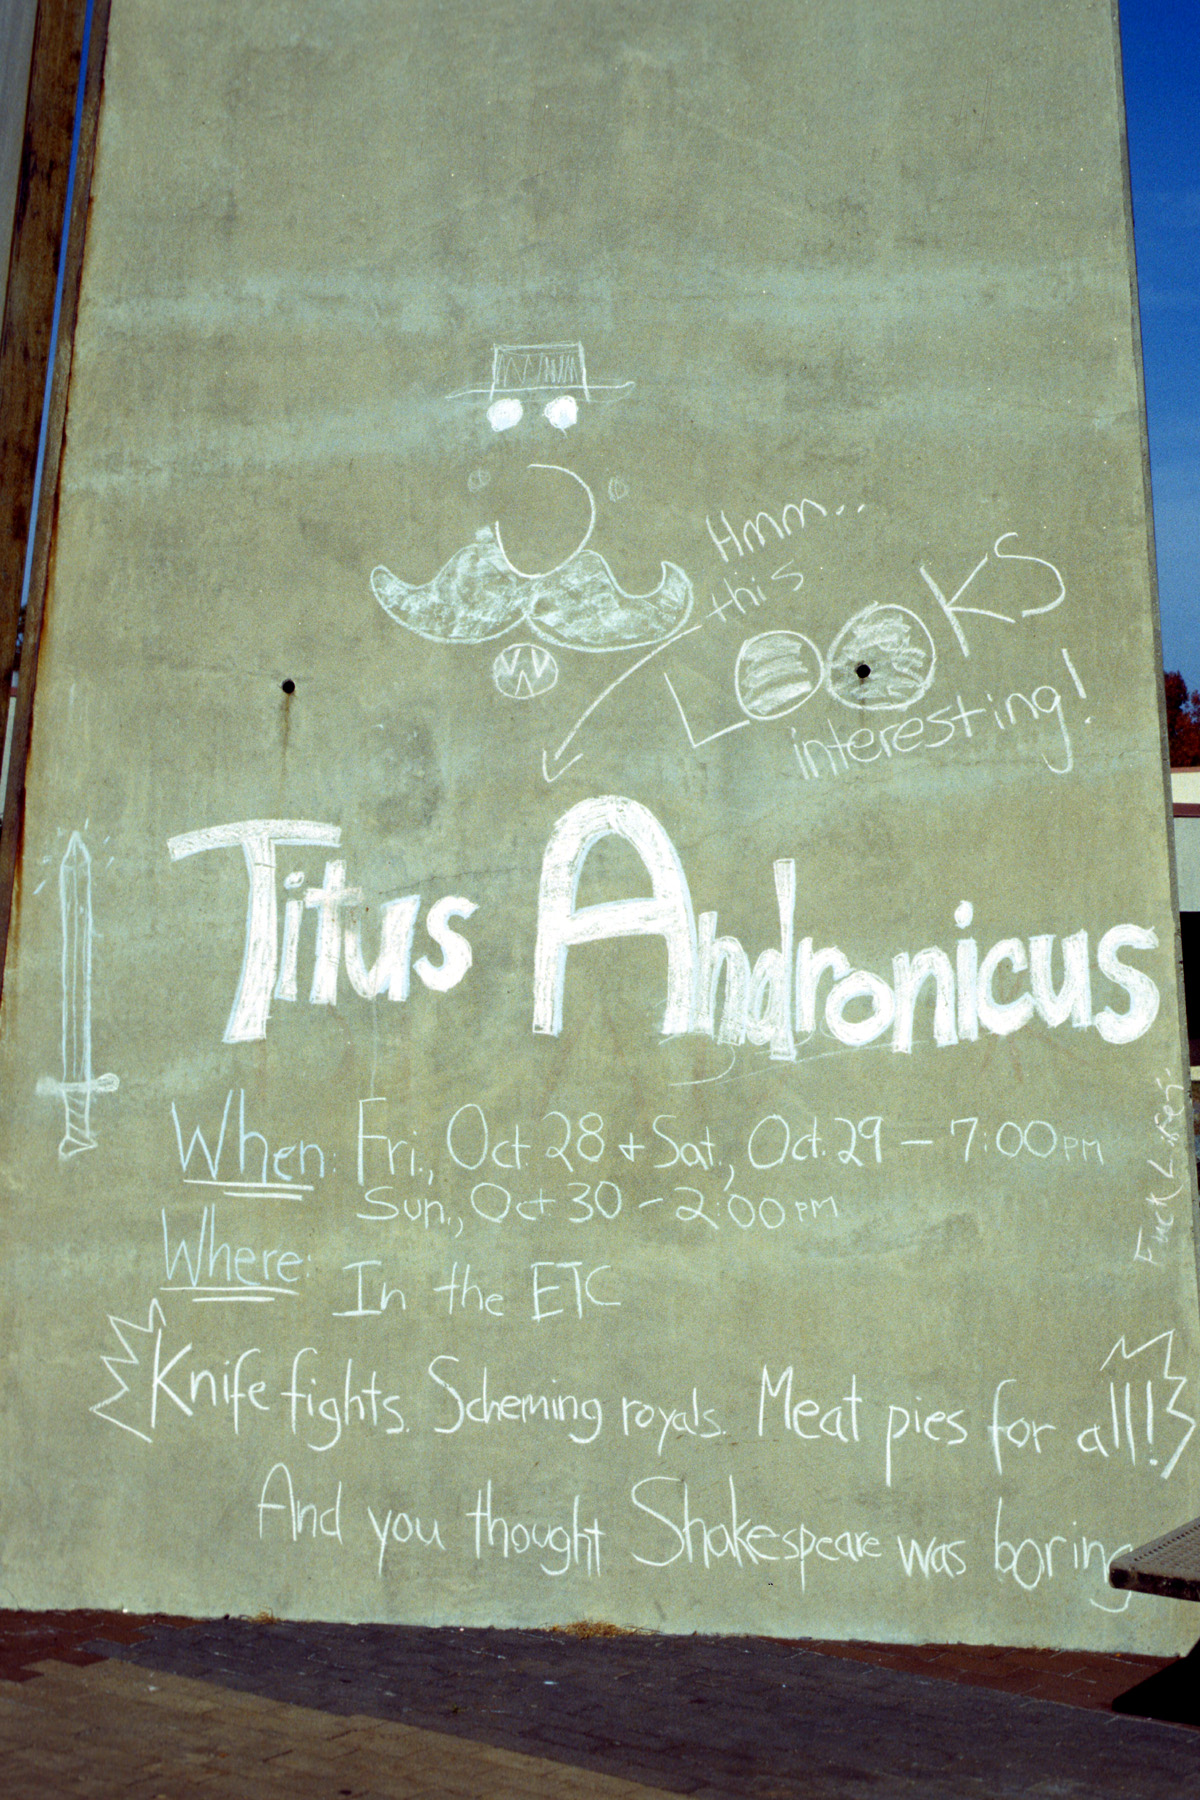 Hmm..
this
LOOKS
interesting!
Titus Andronicus
When: Fri., Oct. 28 + Sat., Oct. 29 - 7:00 PM
Sun., Oct 30 - 2:00 PM
Where: In the ETC
Knife fights. Scheming royals. Meat pies for all!!
And you thought Shakespeare was boring
Fuck Life